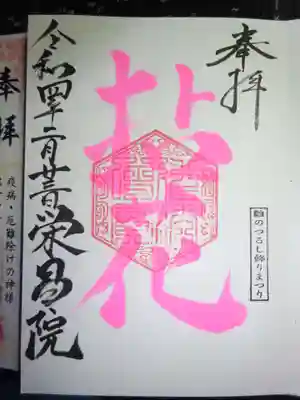 奉拝
雛のつるし飾りまつり
拈花
令和四年二月廿三日栄昌院
奉拝
疫病・厄難除けの神様